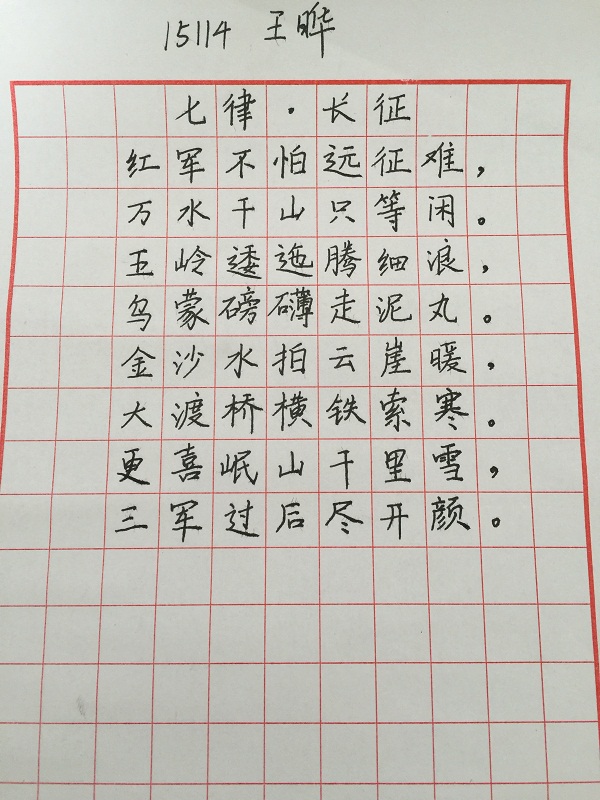 15114 王晔
七律·长征
红军不怕远征难，
万水千山只等闲。
五岭逶迤腾细浪，
乌蒙磅礴走泥丸。
金沙水拍云崖暖，
大渡桥横铁索寒。
更喜岷山千里雪，
三军过后尽开颜。